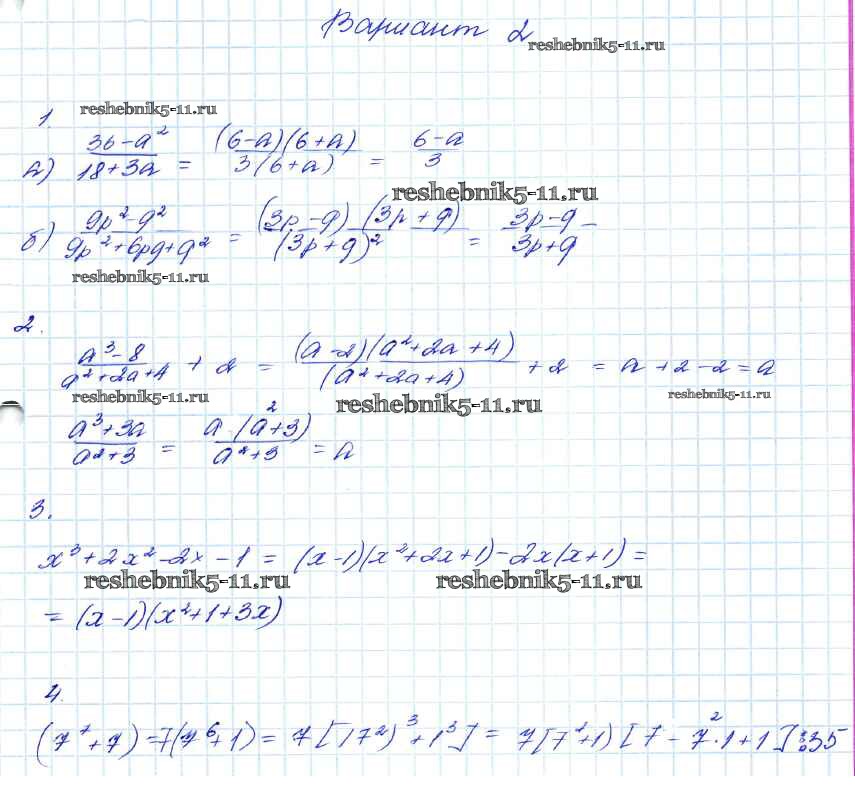 Вариант 2
reshebnik5-11.ru
1.
reshebnik5-11.ru
а) (36-a²)/(18+3a) = ((6-a)(6+a))/(3(6+a)) = (6-a)/3
reshebnik5-11.ru
б) (9p²-q²)/(9p²+6pq+q²) = ((3p-q)(3p+q))/((3p+q)²) = (3p-q)/(3p+q)
reshebnik5-11.ru
2.
(a³-8)/(a²+2a+4) + 2 = ((a-2)(a²+2a+4))/((a²+2a+4)) + 2 = a+2-2=a
reshebnik5-11.ru reshebnik5-11.ru reshebnik5-11.ru
(a³+3a)/(a²+3) = (a·(a²+3))/(a²+3) = a
3.
x³+2x²-2x-1 = (x-1)(x²+2x+1)-2x(x+1)=
reshebnik5-11.ru reshebnik5-11.ru
=(x-1)(x²+1+3x)
4.
(7⁷+7)=7(7⁶+1)= 7[(7²)³+1³]= 7[7²+1)[7-7²·1+1]⋮35